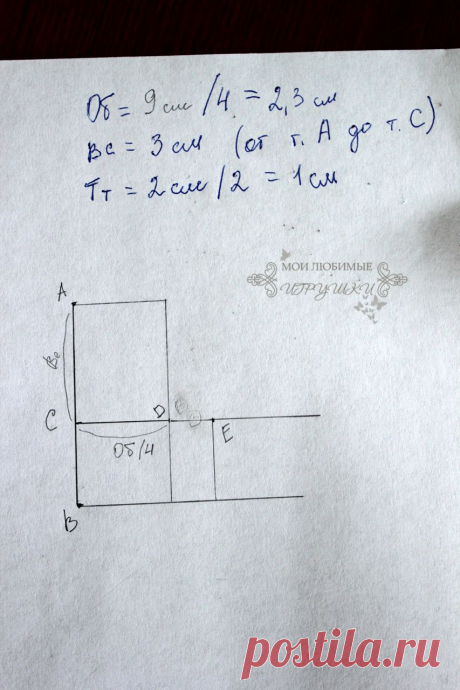 Об = 9 см / 4 = 2,3 см
Вс = 3 см (от т. А до т. С)
Тт = 2 см / 2 = 1 см
МОИ ЛЮБИМЫЕ
ИГРУШКИ
А
Вс
С
D
Е
Об/4
В
postila.ru